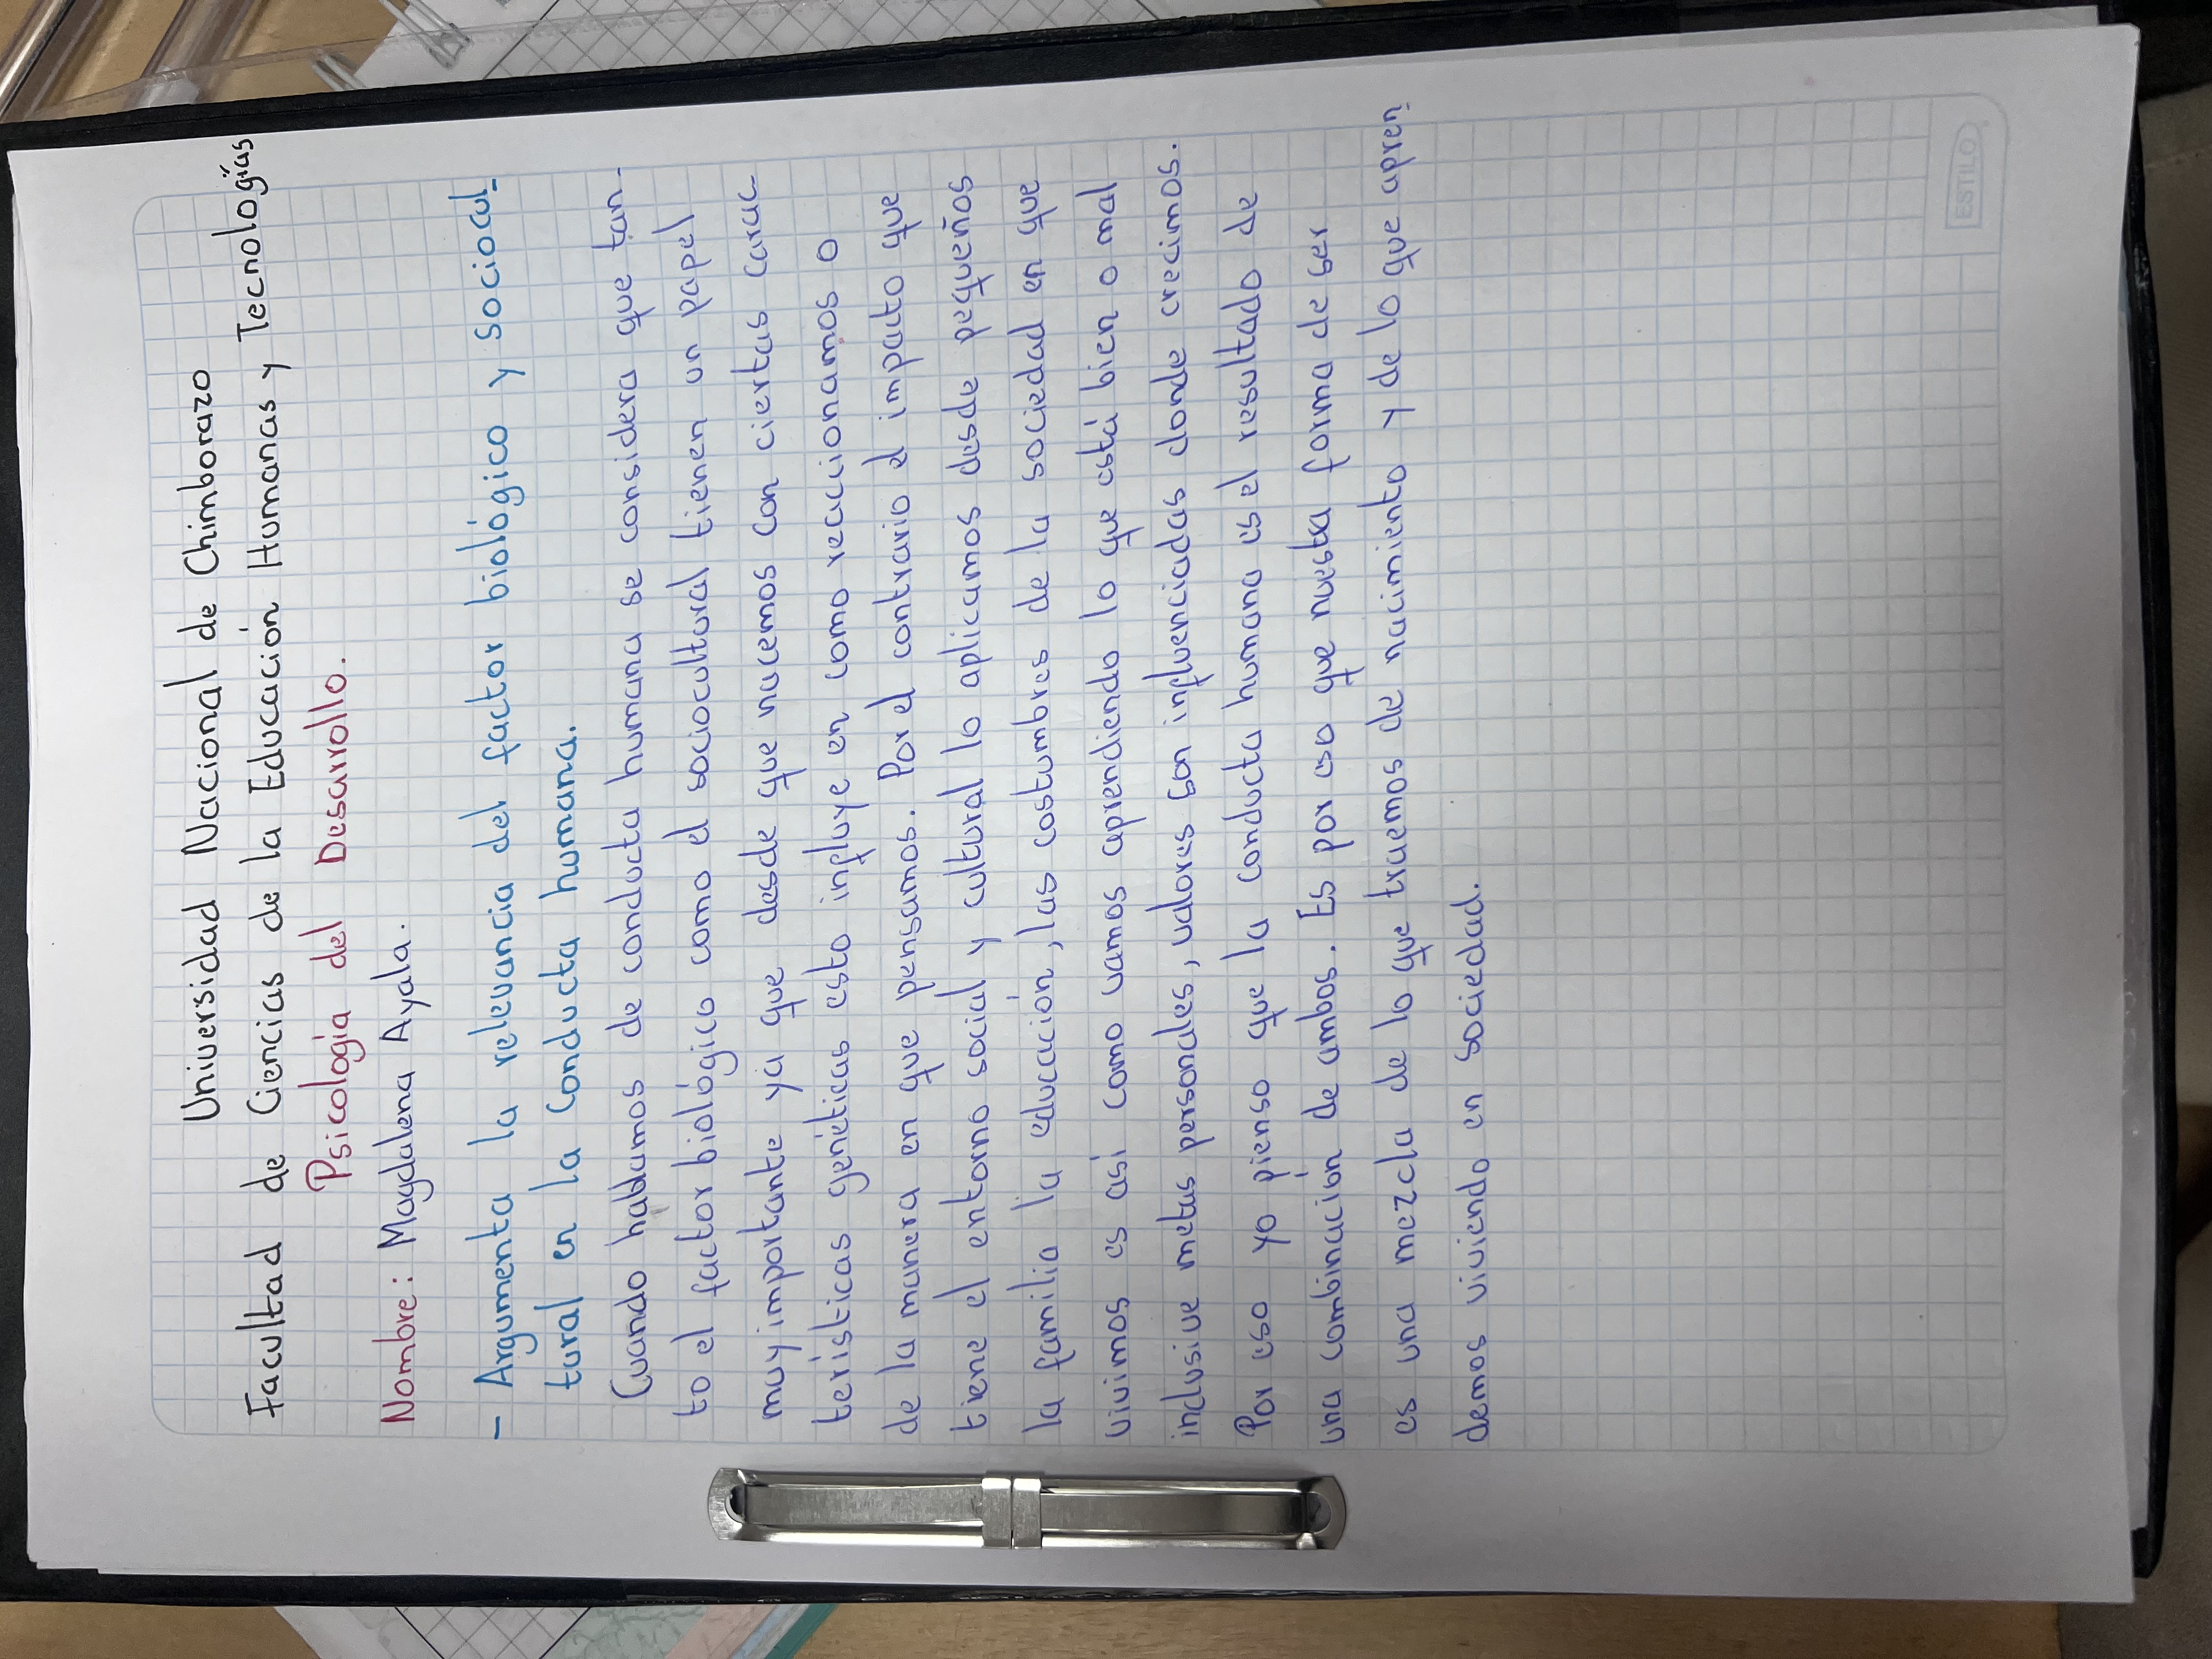 Universidad Nacional de Chimborazo
Facultad de Ciencias de la Educación Humanas y Tecnologías
Psicología del Desarrollo.
Nombre: Magdalena Ayala.
- Argumenta la relevancia del factor biológico y sociocul-
tural en la conducta humana.
Cuando hablamos de conducta humana se considera que tan-
to el factor biológico como el sociocultural tienen un papel
muy importante ya que desde que nacemos con ciertas carac-
terísticas genéticas esto influye en como reaccionamos o
de la manera en que pensamos. Por el contrario el impacto que
tiene el entorno social y cultural lo aplicamos desde pequeños
la familia la educación, las costumbres de la sociedad en que
vivimos es así como vamos aprendiendo lo que está bien o mal
inclusive metas personales, valores son influenciadas donde crecimos.
Por eso yo pienso que la conducta humana es el resultado de
una combinación de ambos. Es por eso que nuestra forma de ser
es una mezcla de lo que traemos de nacimiento y de lo que apren-
demos viviendo en sociedad.
ESTILO